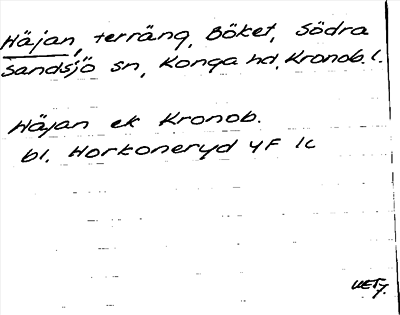 Häjan, terräng, Böket, Södra
Sandsjö sn, Konga hd, Kronob. l.
Häjan ek Kronob.
bl. Horkoneryd 4F 1c